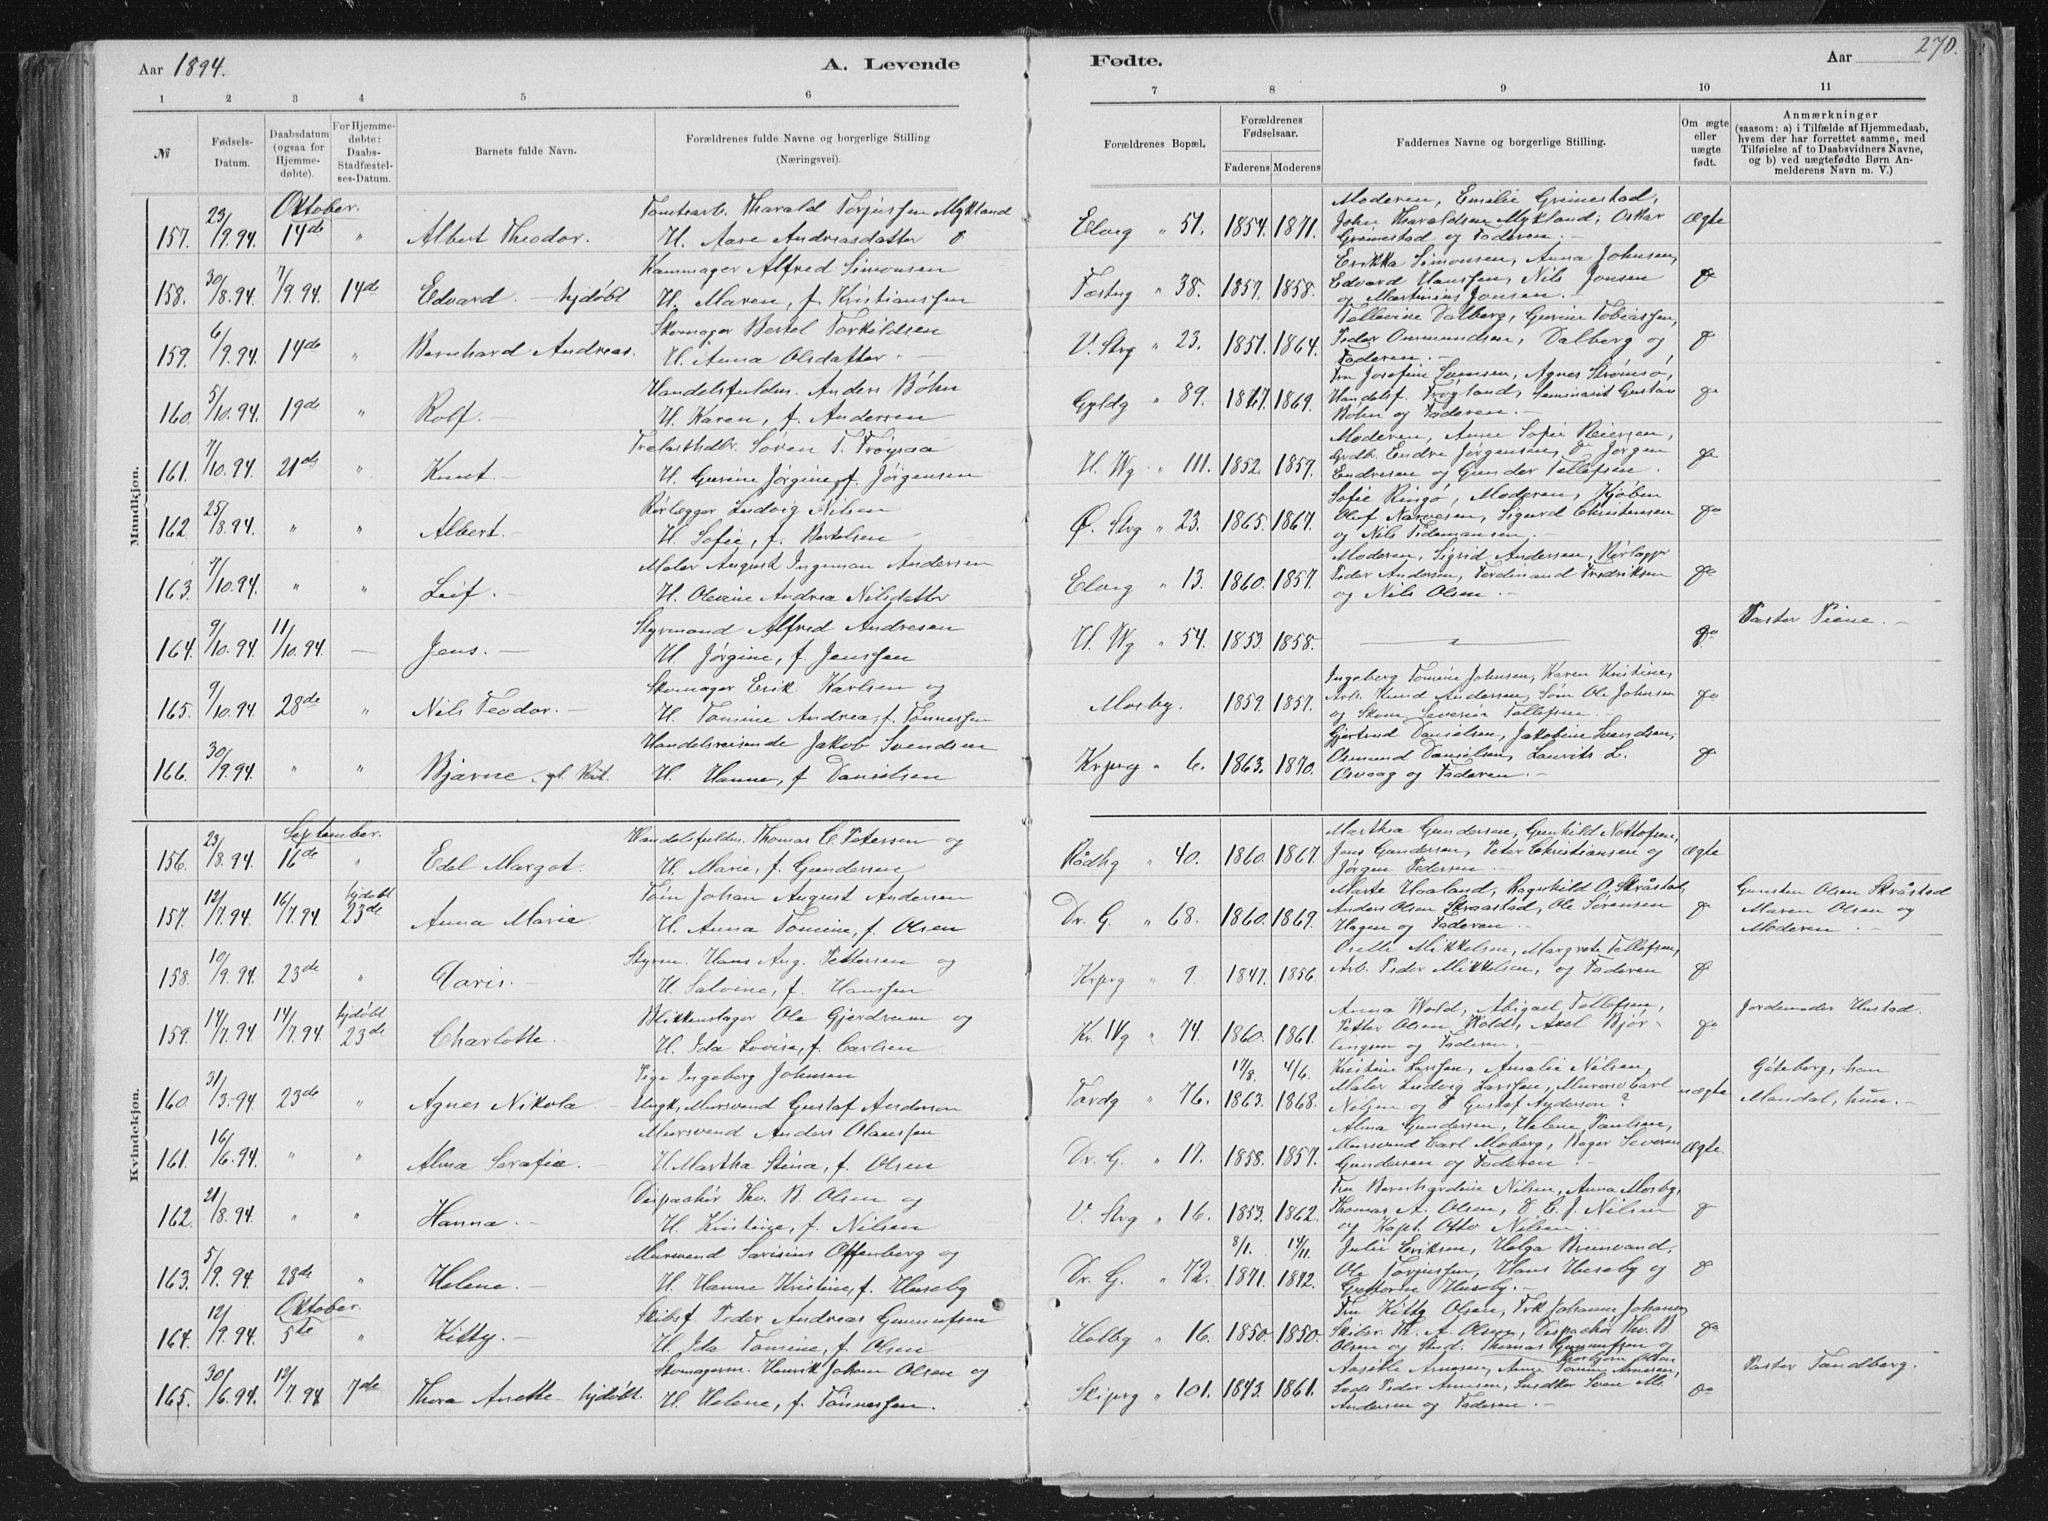 Aar 1894.
A. Levende
Fødte.
Aar
270.
1 2 3 4 5 6 7 8 9 10 11
№
Fødsels-
Datum.
Daabsdatum
(ogsaa for
Hjemme-
døbte).
For Hjemme-
døbte:
Daabs-
Stadfæstel-
ses-Datum.
Barnets fulde Navn.
Forældrenes fulde Navne og borgerlige Stilling
(Næringsvei).
Forældrenes Bopæl.
Forældrenes
Fødselsaar.
Faderens Moderens
Faddernes Navne og borgerlige Stilling.
Om ægte
eller
uægte
født.
Anmærkninger
(saasom: a) i Tilfælde af Hjemmedaab,
hvem der har forrettet samme, med
Tilføielse af to Daabsvidners Navne,
og b) ved uægtefødte Børn An-
melderens Navn m. V.)
Mandkjøn.
Oktober.
157. 23/9.94. 14de " Albert Theodor.
Tomtearb. Tharald Torjussen Mykland
H. Aase Andreasdatter
Elveg " 51. 1854. 1871.
Moderen, Emilie Grimestad,
John Tharaldsen Mykland, Oskar
Grimestad og Faderen.
Ægte
158. 30/8.94. 7/9.94. 14de Edvard. - hjdøbt
Kammager Alfred Simonsen
H. Maren, f. Kristianssen
Fæstng " 38. 1857. 1858.
Erikka Simonsen, Anna Johnsen,
Edvard Hanssen, Nils Jonsen
og Martinius Jonsen.
do
159. 6/9.94. 14de " Bernhard Andreas.
Skomager Bertel Torkildsen
H. Anna Olsdatter
V. Strg " 23. 1851. 1864.
Tellevine Dalberg, Gurine Tobiassen,
Peder Ommundsen, Dalberg og
Faderen.
do
160. 5/10.94. 19de " Rolf.
Handelsfuldm. Anders Bøhn
H. Karen, f. Andersen
Gyldg " 89. 1867. 1869.
Fru Josefine Svensen, Agnes Strømsø,
Handelsf. Frøyland, Seminarist Gustav
Bøhn og Faderen.
do
161. 7/10.94. 21de " Knut.
Trelasthdlr. Søren T. Frøysaa
H. Gurine Jørgine, f. Jørgensen
H. Wg " 111. 1852. 1859.
Moderen, Anne Sofie Reiersen,
Grdb. Endre Jørgensen, do Jørgen
Endresen og Gunder Tellefsen.
do
162. 25/8.94. " " Albert.
Rørlægger Ludvig Nilsen
H. Sofie, f. Bertelsen
Ø. Strg " 23. 1865. 1867.
Sofie Ringø, Moderen, Kjøbm
Olof Narvesen, Sigurd Christensen
og Nils Tidemansen.
do
163. 7/10.94. " " Leif.
Maler August Ingeman Andersen
H. Olevine Andrea Nilsdatter
Elveg " 13. 1860. 1857.
Moderen, Sigrid Andersen, Rørlægger
Peder Andersen, Ferdinand Fredriksen
og Nils Olsen.
do
164. 9/10.94. 11/10.94. — Jens.
Styrmand Alfred Andresen
H. Jørgine, f. Jenssen
H. Wg " 54. 1853. 1858.
do
Pastor Piene.
165. 9/10.94. 28de " Nils Teodor.
Skomager Erik Karlsen og
H. Tomine Andrea, f. Tønnessen
Mosby. 1859. 1857.
Ingeborg Tomine Johnsen, Karen Kristine,
Arb. Knud Andersen, Søm Ole Johnsen
og Skom Severin Tellefsen.
do
166. 30/9.94. " " Bjarne
Handelsreisende Jakob Svendsen
H. Hanne, f. Danielsen
Krprg " 6. 1863. 1870.
Gjertrud Danielsen, Jakobine Svendsen,
Osmund Danielsen, Laurits L.
Osvaag og Faderen.
do
Kvindekjøn.
September.
156. 23/8.94. 16de " Edel Margot.
Handelsfuldm. Thomas C. Petersen og
H. Marie, f. Gundersen
Rådhg " 40. 1860. 1867.
Marthea Gundersen, Gunhild Nottolfsen,
Jens Gundersen, Peter Christiansen og
Jørgen Pedersen.
Ægte
157. 12/7.94. 16/7.94. hjdøbt 23de Anna Marie
Tøm Johan August Andersen
H. Anna Tomine, f. Olsen
Dr. G. " 68. 1860. 1869.
Marte Haaland, Ragnhild O. Skråstad,
Anders Olsen Skraastad, Ole Sørensen
Hagen og Faderen.
do
Gunsten Olsen Skråstad
Maren Olsen og
Moderen.
158. 10/9.94. 23de " Daris.
Styrm. Hans Aug. Pettersen og
H. Salvine, f. Hanssen
Krprg " 9. 1847. 1856
Oselle Mikkelsen, Margrete Tellefsen,
Arb. Peder Mikkelsen, og Faderen
do
159. 14/7.94 14/7.94. hjdøbt 23de Charlotte.
Blikkenslager Ole Gjerdrum og
H. Ida Lovise, f. Carlsen
Kr. Wg " 74. 1860. 1861.
Anna Wold, Abigael Tellefsen,
Petter Olsen Wold, Axel Bjør-
lingson og Faderen.
do
Jordemoder Hustad.
160. 31/3.94. 23de " Agnes Nikola
Pige Ingeborg Johnsen
Ungk. Mursvend Gustaf Anderson
Tordg " 76. 17/8. 1863. 4/6. 1868.
Kristine Larssen, Amalie Nilsen,
Maler Ludvig Larssen, Murersv Carl
Nilsen og Gustaf Anderson?
uægte
Göteborg, han
Mandal, hun.
161. 16/6.94. " " Alma Serafia.
Mursvend Anders Olaussen
H. Martha Stina, f. Olsen
Dr. G. " 17. 1858. 1857.
Alma Gundersen, Helene Paulsen,
Mursvend Carl Moberg, Bager Severin
Gundersen og Faderen.
Ægte.
162. 21/8.94. " " Hanna.
Dispachør Thv. B. Olsen og
H. Kristine, f. Nilsen
V. Strg " 16. 1853. 1862.
Fru Bernhardine Nilsen, Anna Mosby,
Thomas A. Olsen, C. J. Nilsen
og Kapt. Otto Nilsen.
do
163. 5/9.94. 28de " Helene.
Mursvend Sarisius Offenberg og
H. Hanne Kristine, f. Huseby
Dr. G. " 72. 8/1. 1871. 14/11. 1872.
Julie Eriksen, Helga Brunvand,
Ole Torjussen, Hans Huseby og
Guttorm Huseby.
do
Oktober.
164. 12/9.94. 5te " Kitty.
Skibsf. Peder Andreas Gunnufsen
H. Ida Tomine, f. Olsen
Holbg " 16. 1850. 1850.
Fru Kitty Olsen, Frk Johanne Johansen
Skibsr. Th. A. Olsen, Dispachør Thv. B
Olsen og Stud. Thomas Gunnufsen og
Thorbjørn Olsen
do
165. 30/6.94. 12/7.94 7de Thora Anette - hjdøbt.
Skomagerm. Henrik Johan Olsen og
H. Helene, f. Tønnessen.
Skiprg " 101. 1843. 1861.
Aasille Arnesen, Anne Tomine Arnesen,
Lods Peder Arnesen, Snedker Sven M.
Andersen og Faderen.
do
Pastor Tandberg.